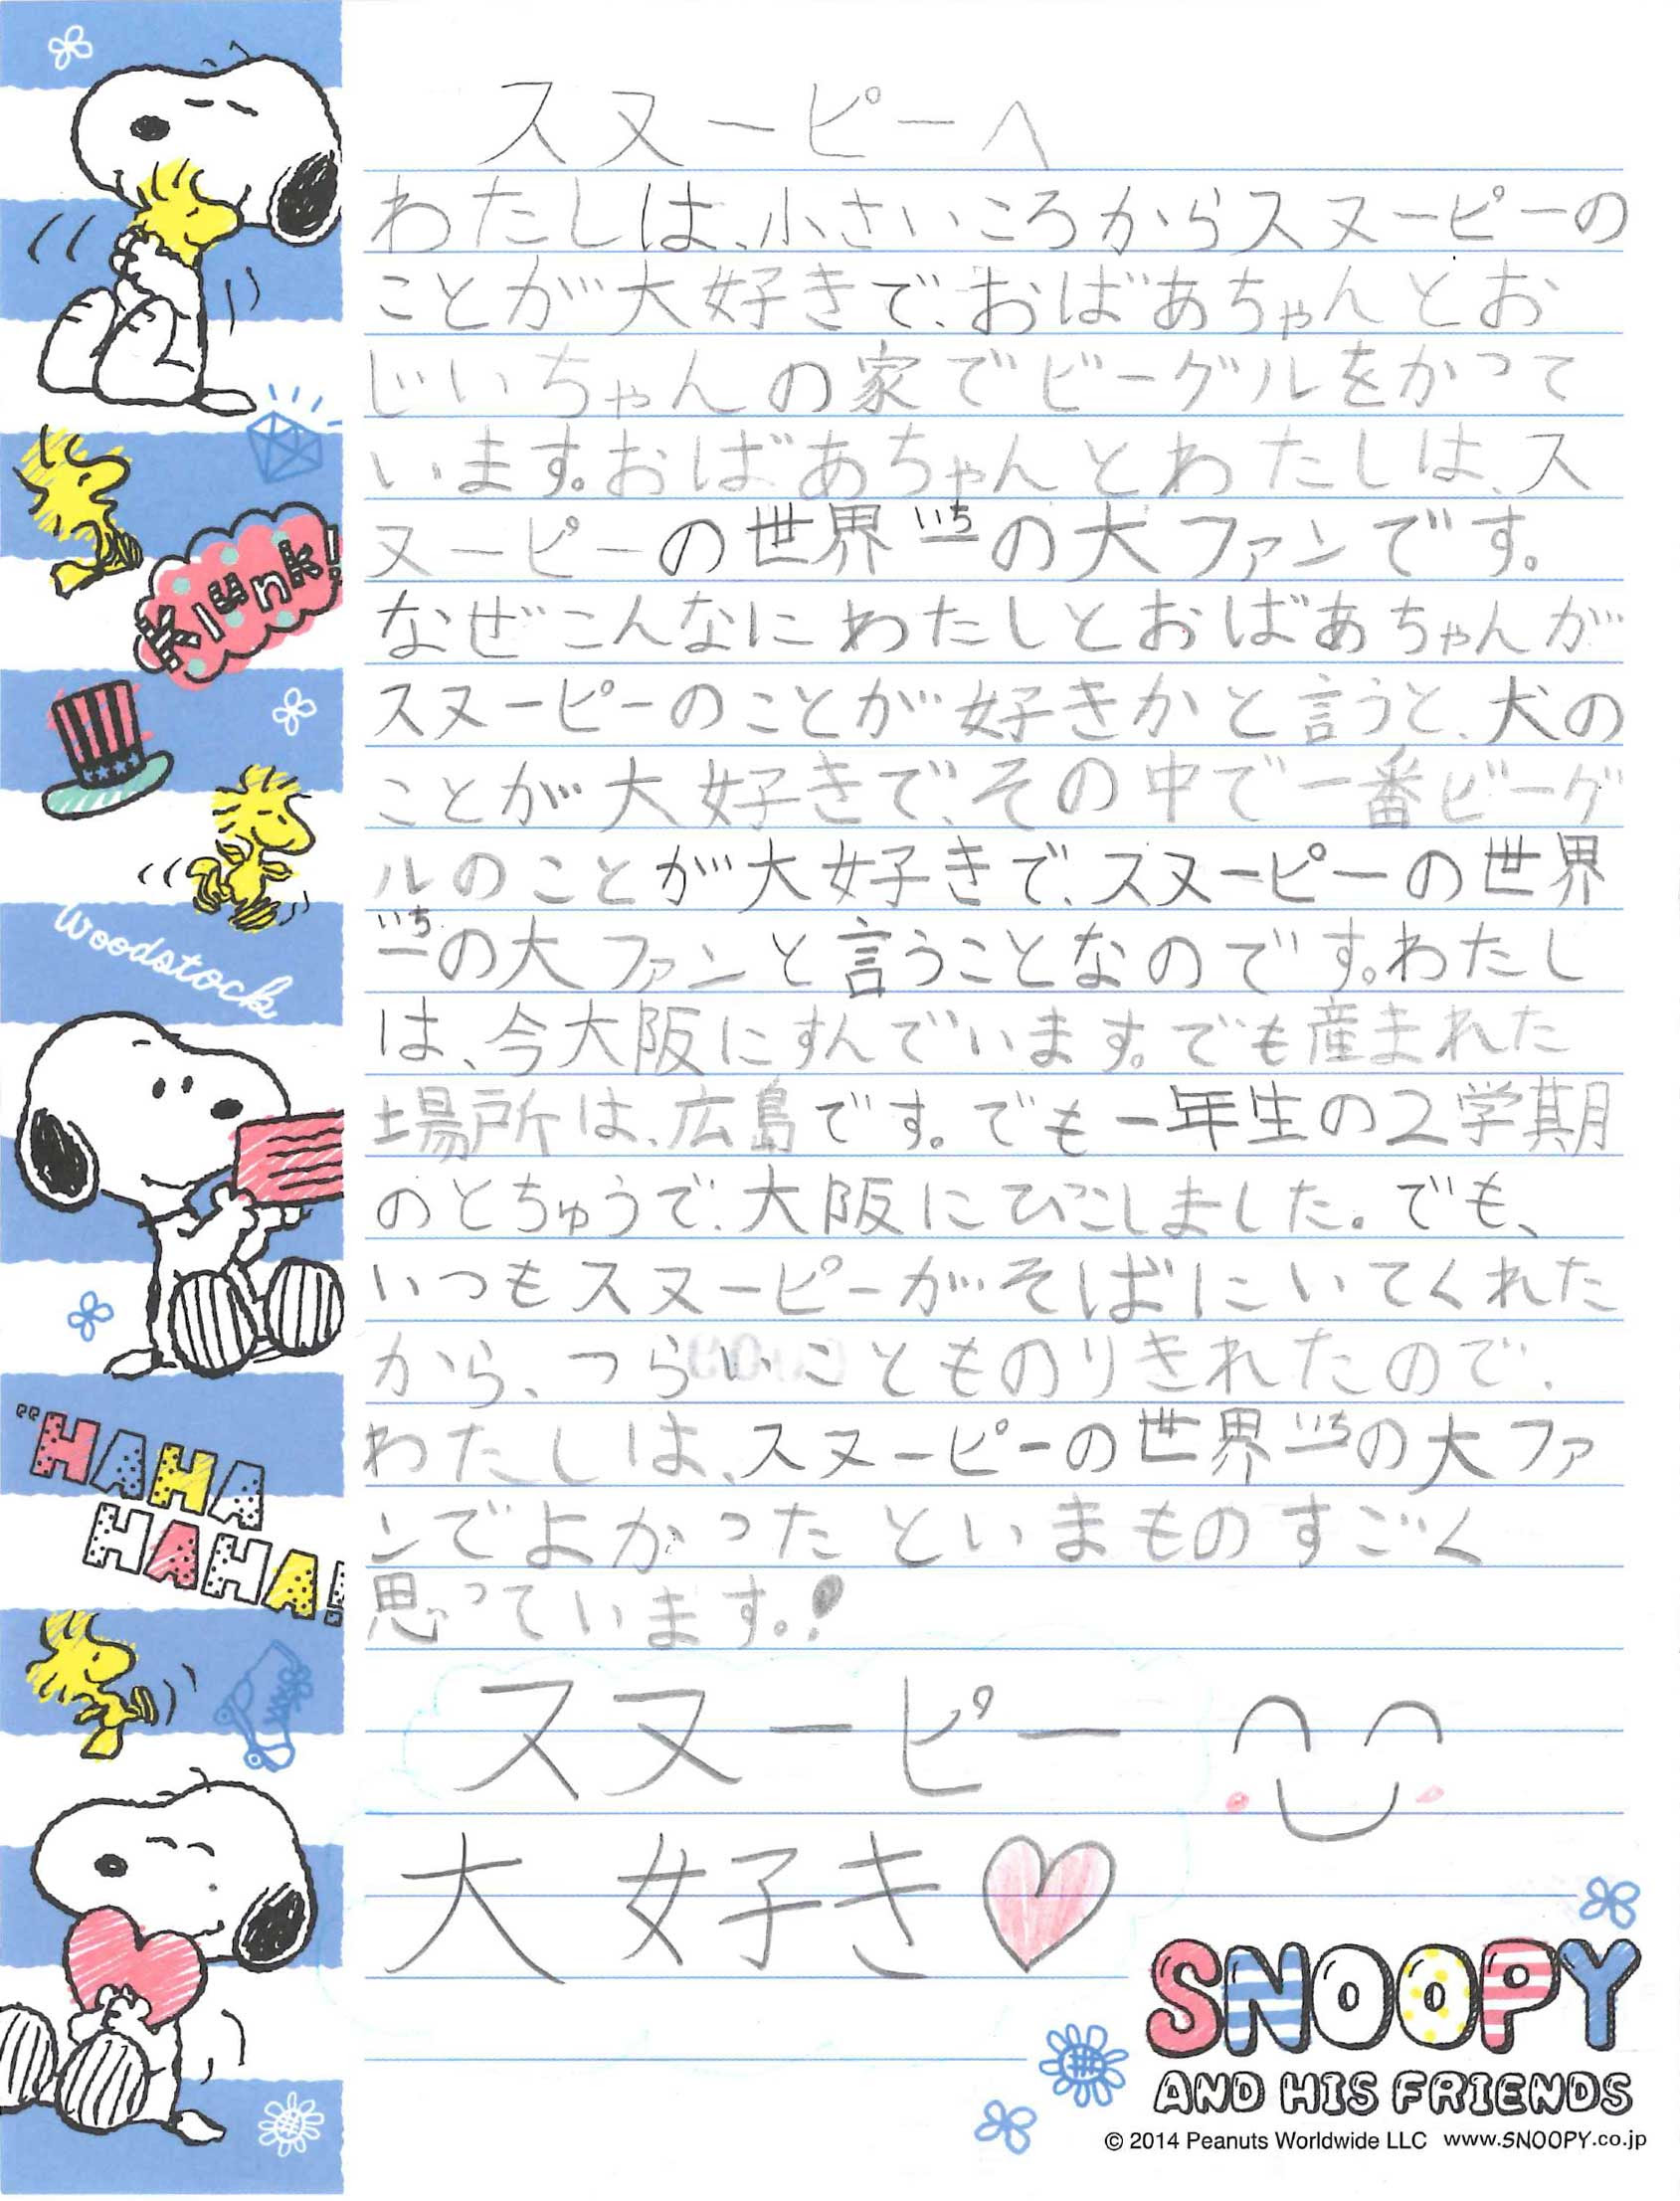 スヌーピーへ
わたしは、小さいころからスヌーピーの
ことが大好きで、おばあちゃんとお
じいちゃんの家でビーグルをかって
います。おばあちゃんとわたしは、ス
ヌーピーの世界一の大ファンです。
いち
なぜこんなにわたしとおばあちゃんが
スヌーピーのことが好きかと言うと、犬の
ことが大好きで、その中で一番ビーグ
ルのことが大好きで、スヌーピーの世界
いち
一の大ファンと言うことなのです。わたし
は、今大阪にすんでいます。でも産まれた
場所は、広島です。でも一年生の2学期
のとちゅうで、大阪にひこしました。でも、
いつもスヌーピーがそばにいてくれた
から、つらいことものりきれたので、
わたしは、スヌーピーの世界一の大ファ
いち
ンでよかったといまものすごく
思っています。!
スヌーピー
大好き
Klunk!
Woodstock
"HAHA
HAHA!
SNOOPY
AND HIS FRIENDS
© 2014 Peanuts Worldwide LLC www.SNOOPY.co.jp